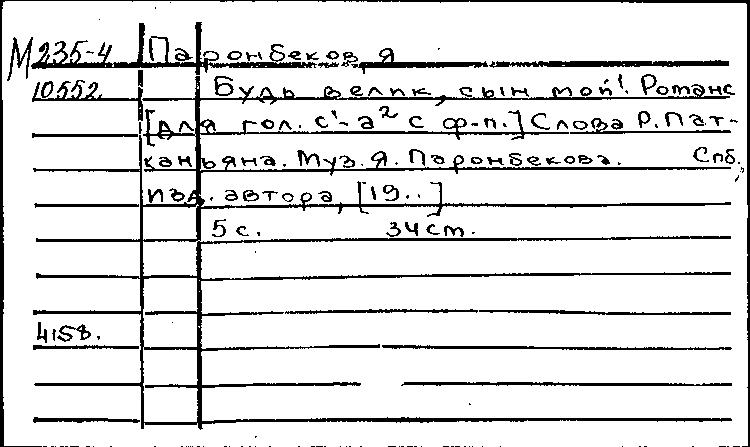 М235-4 Паронбеков, Я
10552. Будь велик, сын мой! Романс
[для гол. c¹-a² с ф-п.] Слова Р. Пат-
каньяна. Муз. Я. Паронбекова. Спб.,
изд. автора, [19..]
5 с. 34 см.
4158.